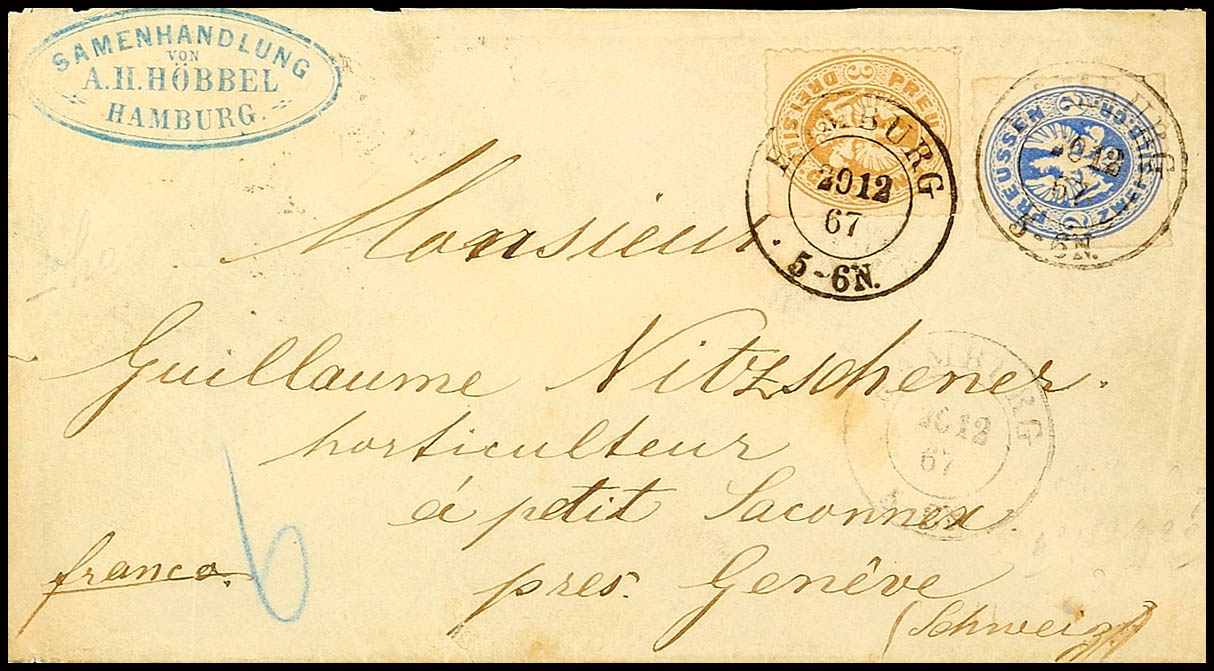 SAMENHANDLUNG
VON
A.H. HÖBBEL
HAMBURG.
PREUSSEN
HAMBURG
2012
67
5-6N.
2012
67
5-6N.
Monsieur
Guillaume Nitzschener.
horticulteur
á petit Saconnex.
pres. Genêve
(Schweiz)
franco.
6
2012
67